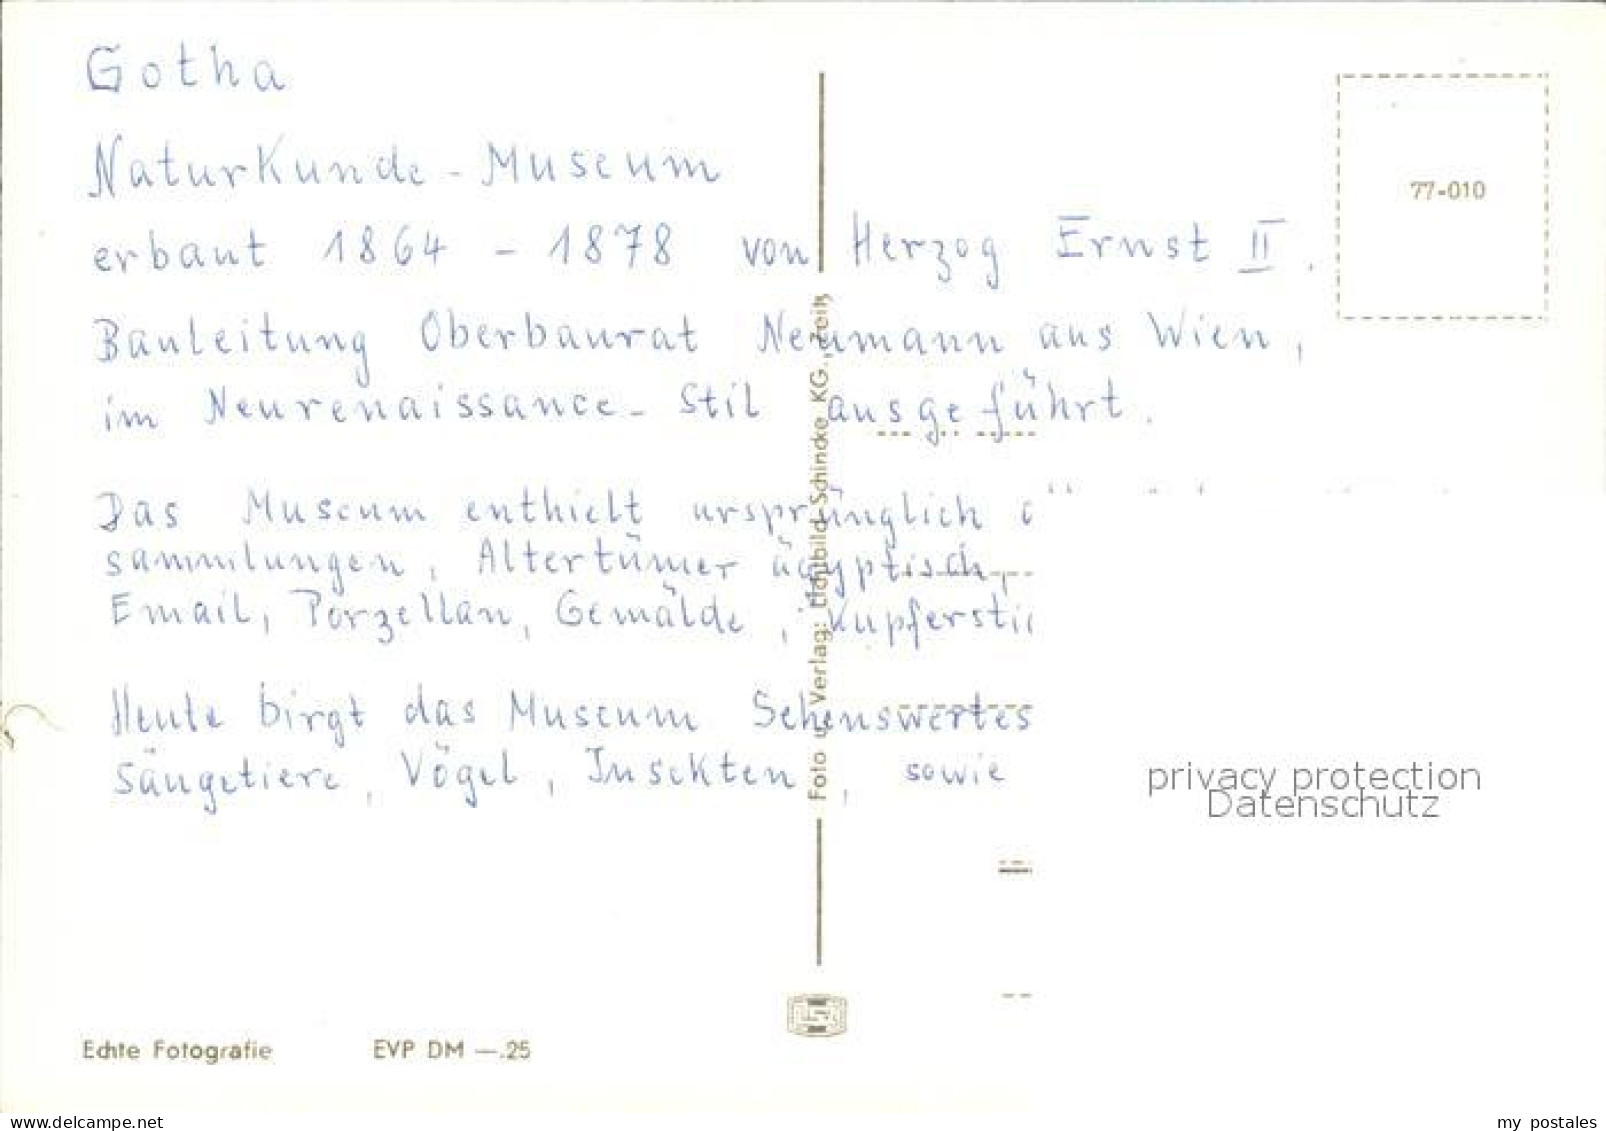 Gotha
Naturkunde - Museum
erbaut 1864 - 1878 von Herzog Ernst II.
Bauleitung Oberbaurat Neumann aus Wien,
im Neurenaissance - Stil ausgeführt.
Das Museum enthielt ursprünglich
sammlungen, Altertümer ägyptisch,
Email, Porzellan, Gemälde, Kupfersti
Heute birgt das Museum Sehenswertes
Säugetiere, Vögel, Insekten, sowie
77-010
Foto u. Verlag: Lichtbild-Schincke KG., Zeitz
privacy protection
Datenschutz
Echte Fotografie EVP DM —.25
www.delcampe.net
my_postales